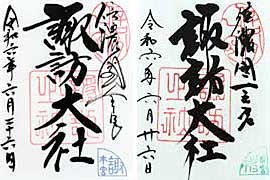 信濃國一之宮
諏訪大社
令和六年六月二十六日
本宮
信濃國一之宮
諏訪大社
令和六年六月廿六日